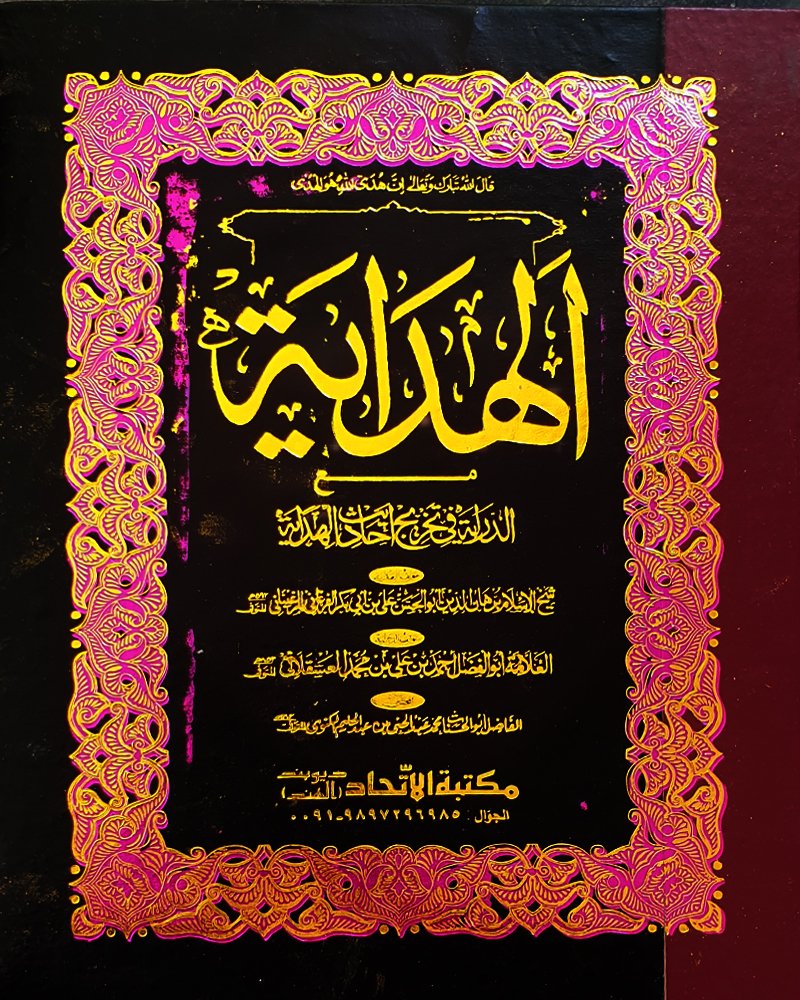 قال الله تبارك وتعالى ان هدى الله هو الهدى
الهداية
مع
الدراية في تخريج احاديث الهداية
شيخ الاسلام برهان الدين ابو الحسن علي بن ابي بكر الفرغاني المرغيناني المتوفى
العلامة ابو الفضل احمد بن علي بن محمد العسقلاني المتوفى
الفاضل ابو الحسنات محمد عبد الحي بن عبد الحليم اللكنوي المتوفى
مكتبة الاتّحاد ديوبند (الهند)
الجوّال: ٠٠٩١-٩٨٩٧٢٩٦٩٨٥